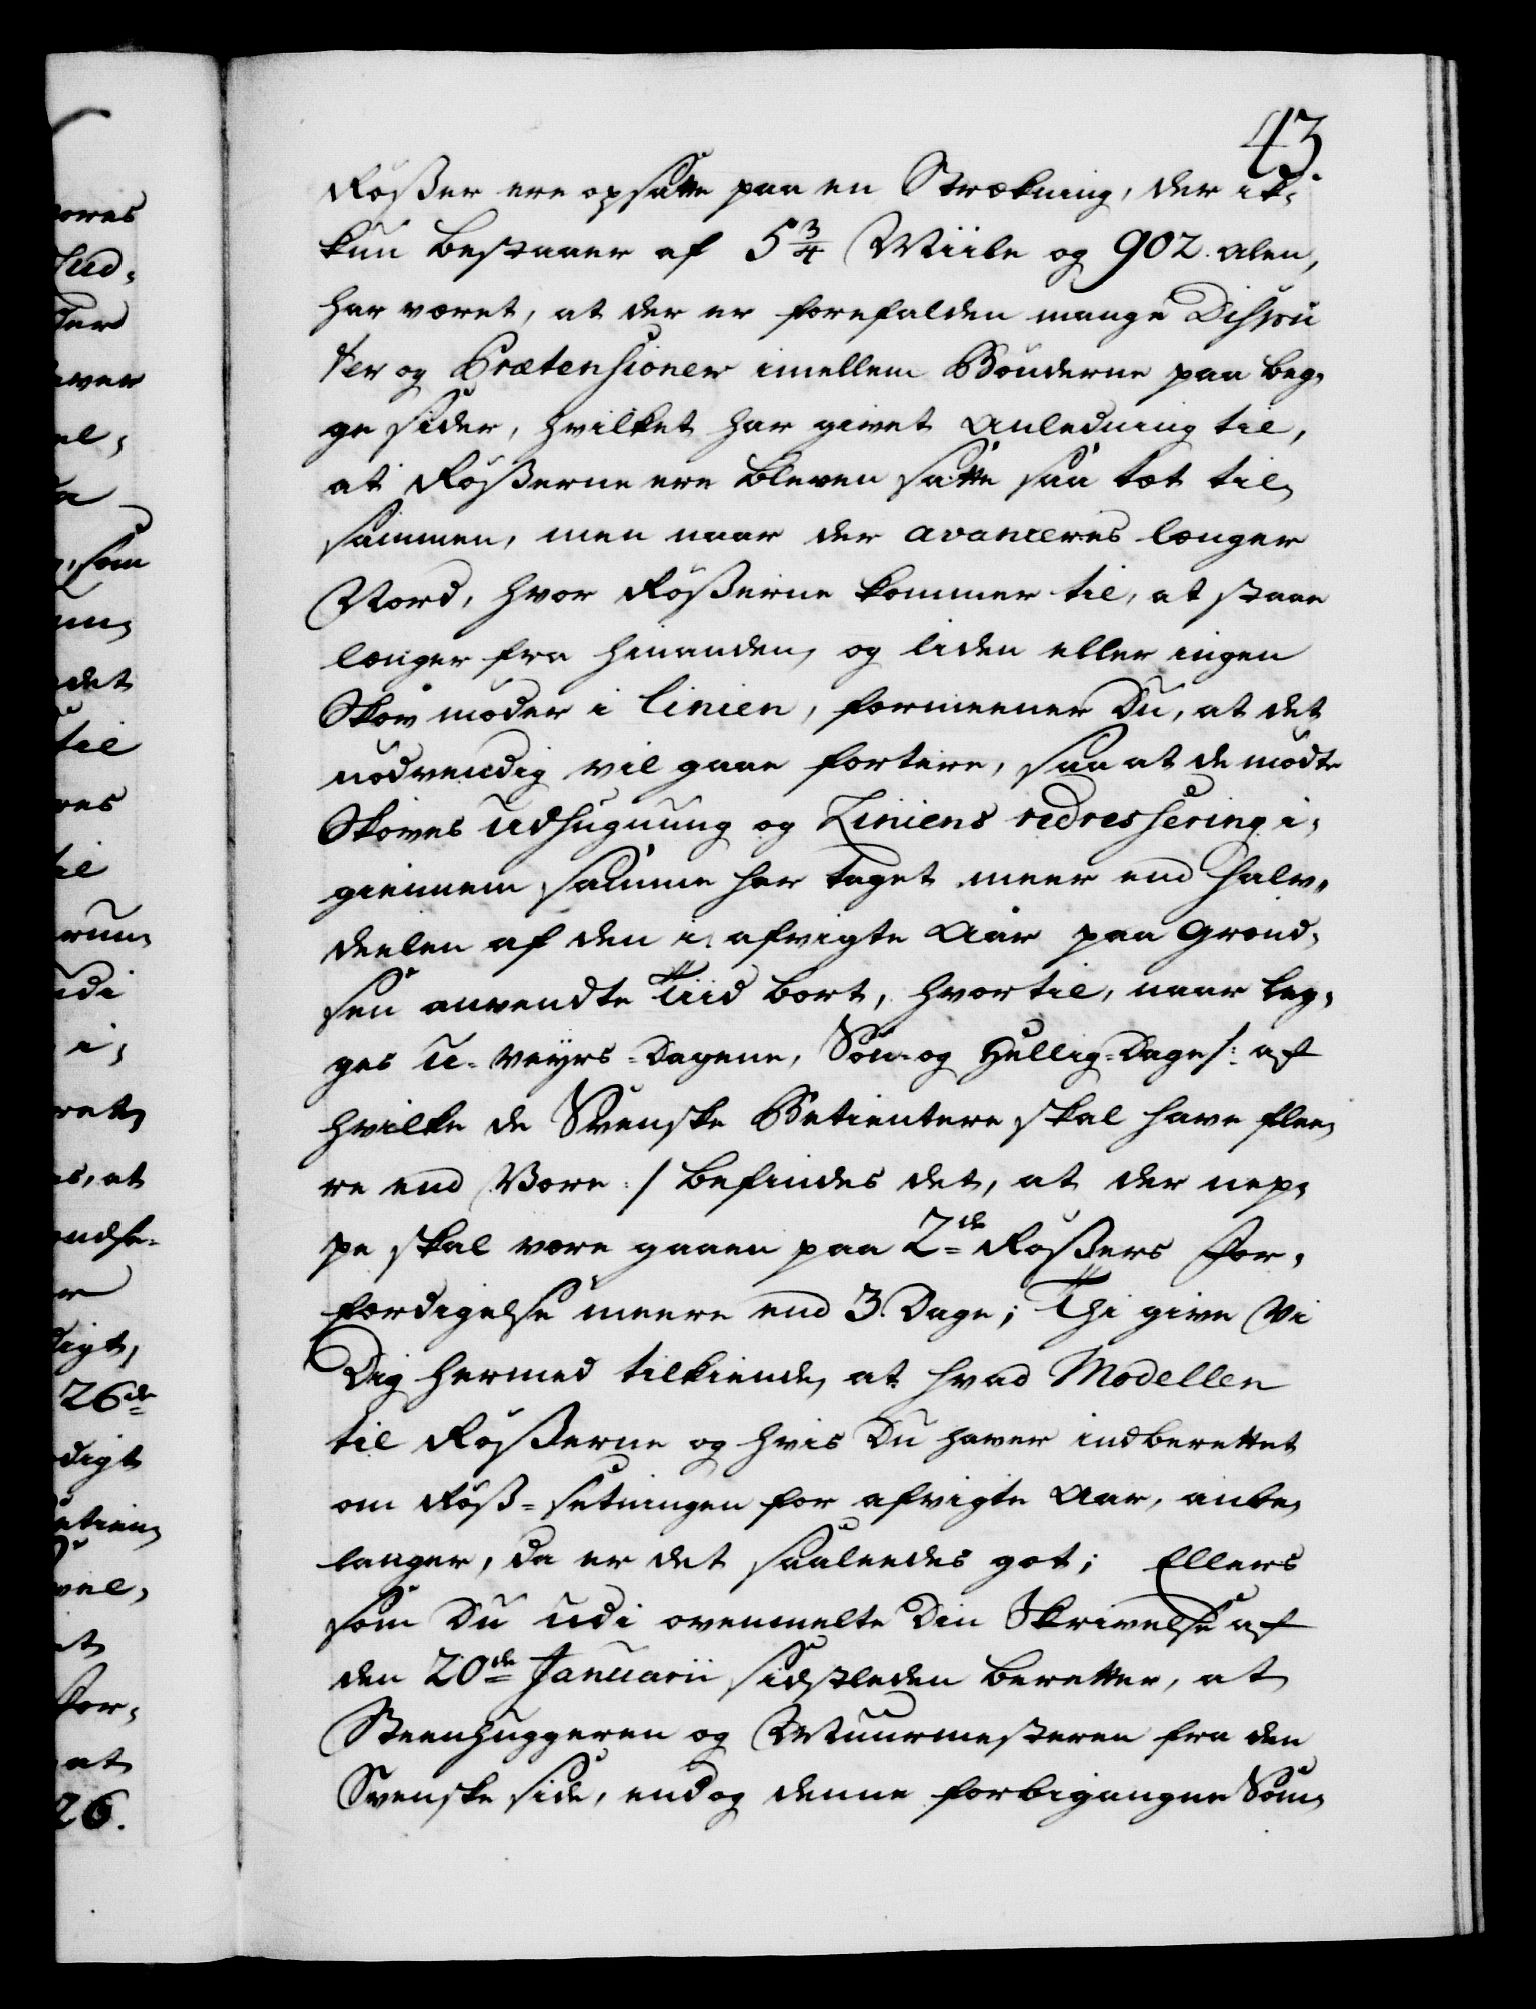 43
Røßer ere opsatte paa en Strækning, der ik-
kun bestaaer af 5 3/4 Miile og 902. alen,
har været, at der er forefalden mange Dispu
ter og Prætensioner imellem Bønderne paa beg-
ge sider, hvilket har givet Anledning til,
at Røßerne ere bleven satte saa tæt til-
sammen, men naar der avanceres længer
Nord, hvor Røßerne kommer til, at staae
længer fra hinanden, og liden eller ingen
Skov møder i Linien, formeener Du, at det
nødvendig vil gaae fortere, saa at de mødte
Skoves Udhugning og Liniens redressering i-
giennem samme har taget meer end halv-
deelen af den i afvigte Aar paa Grænd-
sen anvendte Tiid bort, hvortil, naar læg-
ges U-Veyrs-Dagene, Søn- og Hellig-Dage /: af
hvilke de Svenske Betientere skal have flee-
re end Vore :/ befindes det, at der nep-
pe skal være gaaen paa 2de Røßers For-
færdigelse meere end 3. Dage; Thi give Vi
Dig hermed tilkiende, at hvad Modellen
til Røßerne og hvis Du haver indberettet
om Røß-sætningen for afvigte Aar, anbe-
langer, da er det saaleedes got; Ellers
som Du udi ovenmelte Din Skrivelse af
den 20de Januarii sidstleden beretter, at
Steenhuggeren og Muurmesteren fra den
Svenske side, endog denne forbigangne Som-